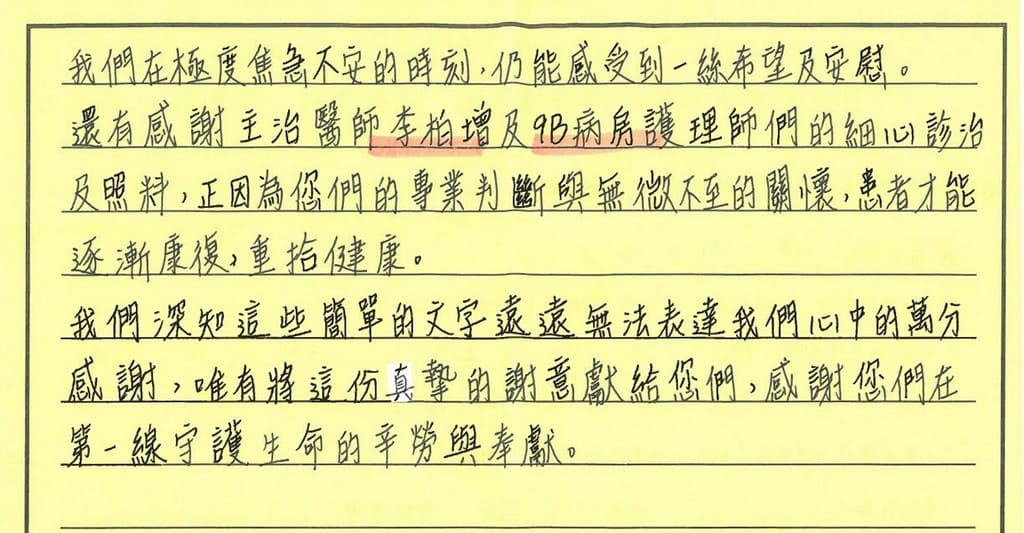 我們在極度焦急不安的時刻，仍能感受到一絲希望及安慰。
還有感謝主治醫師李柏增及9B病房護理師們的細心診治
及照料，正因為您們的專業判斷與無微不至的關懷，患者才能
逐漸康復，重拾健康。
我們深知這些簡單的文字遠遠無法表達我們心中的萬分
感謝，唯有將這份真摯的謝意獻給您們，感謝您們在
第一線守護生命的辛勞與奉獻。